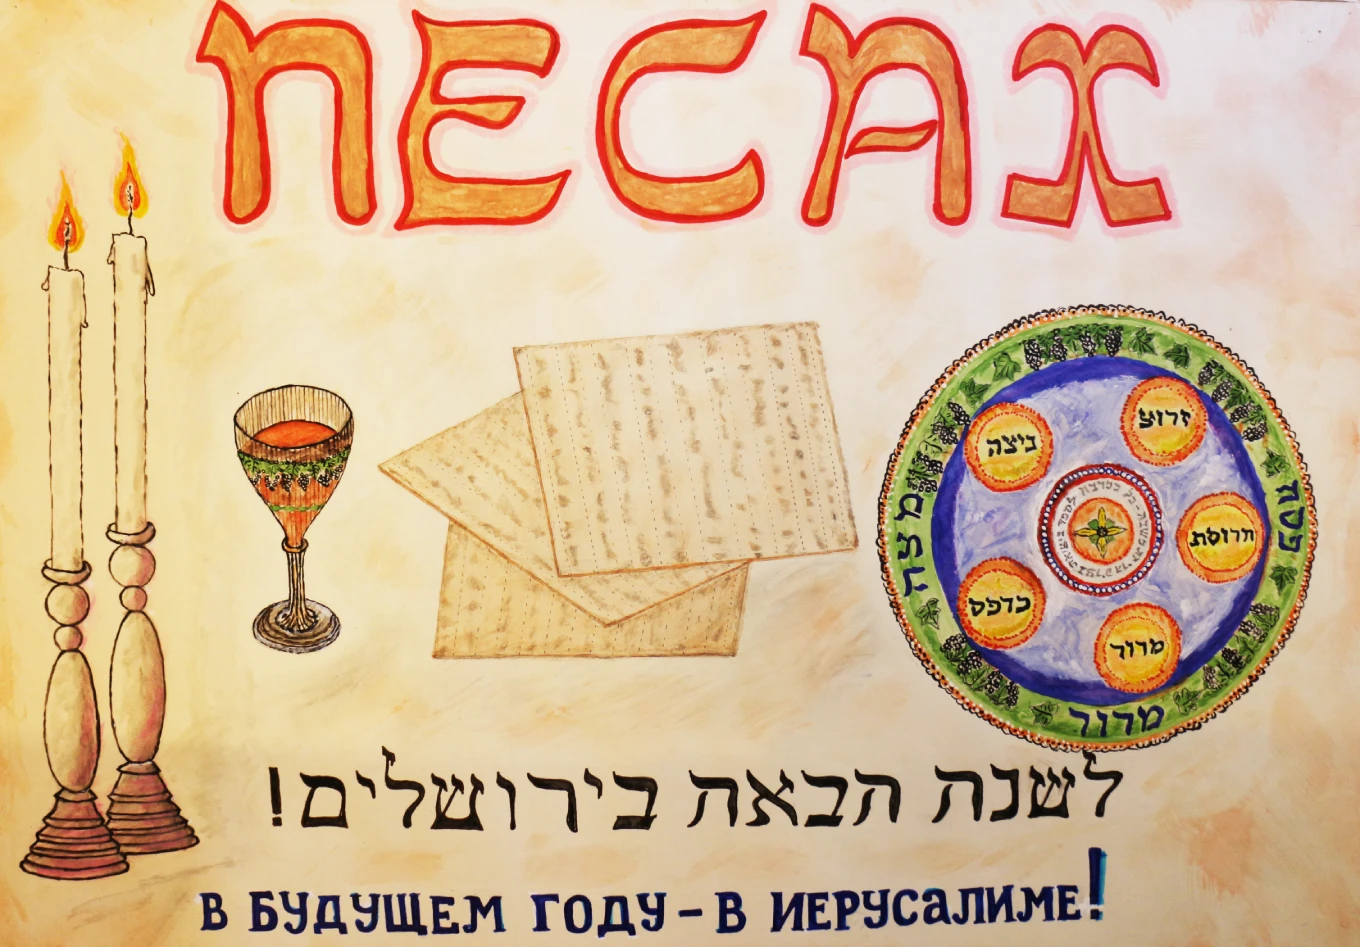 ПЕСАХ
זרוע
ביצה
חרוסת
כרפס
מרור
פסח
מצה
מרור
לשנה הבאה בירושלים!
В БУДУЩЕМ ГОДУ – В ИЕРУСАЛИМЕ!